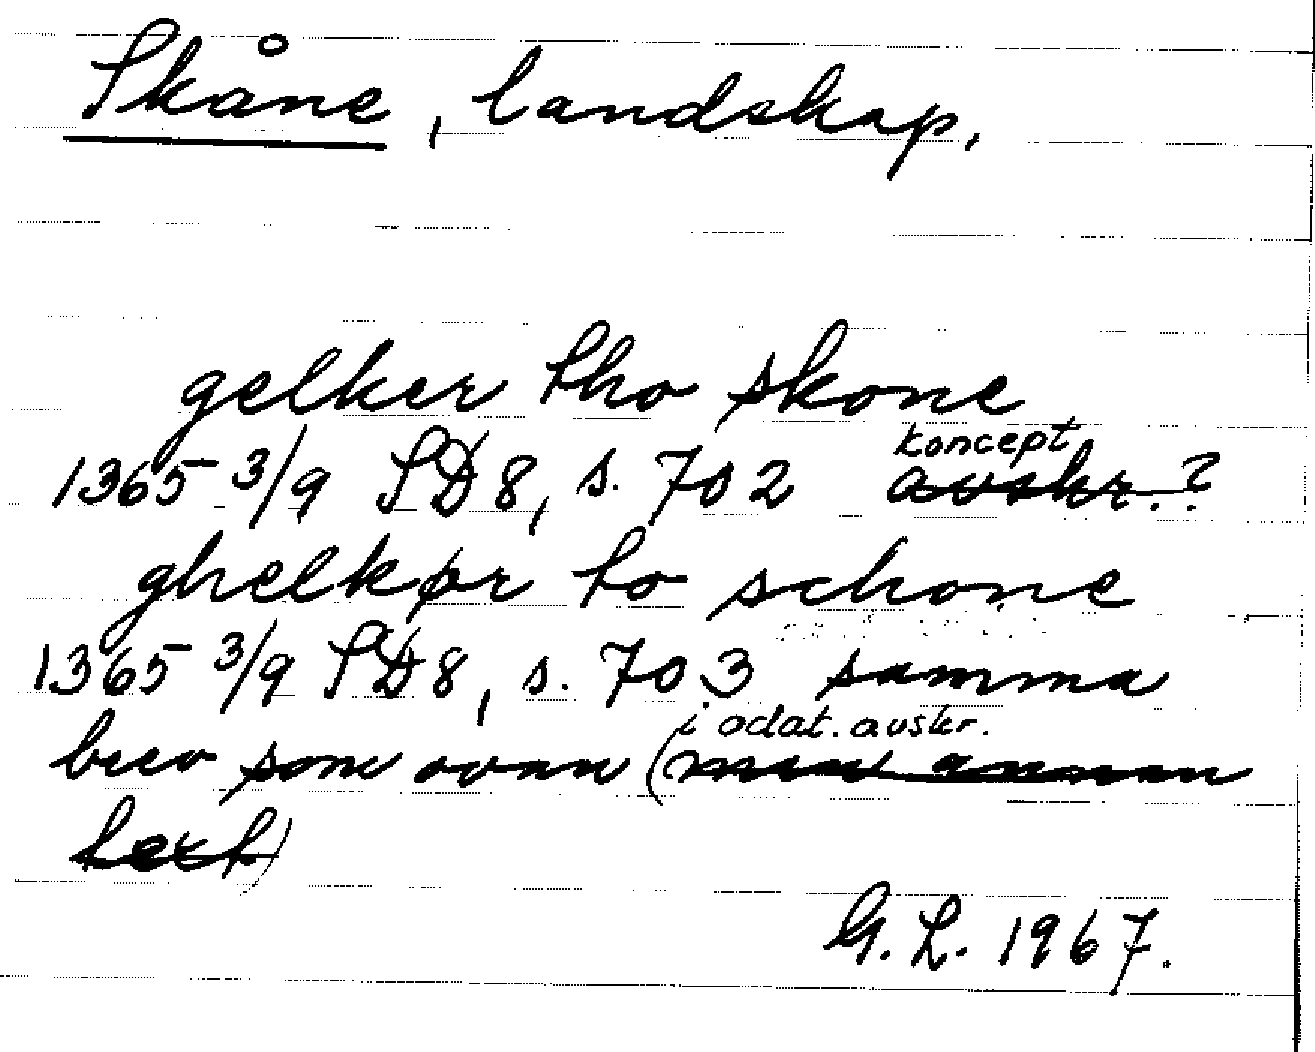 Skåne, landskap.
gelker tho skone
koncept
1365 3/9 SD 8, s. 702 avskr. ?
ghelkør to schone
1365 3/9 SD 8, s. 703 samma
i odat. avskr.
brev som ovan (med annan
text)
G. L. 1967.